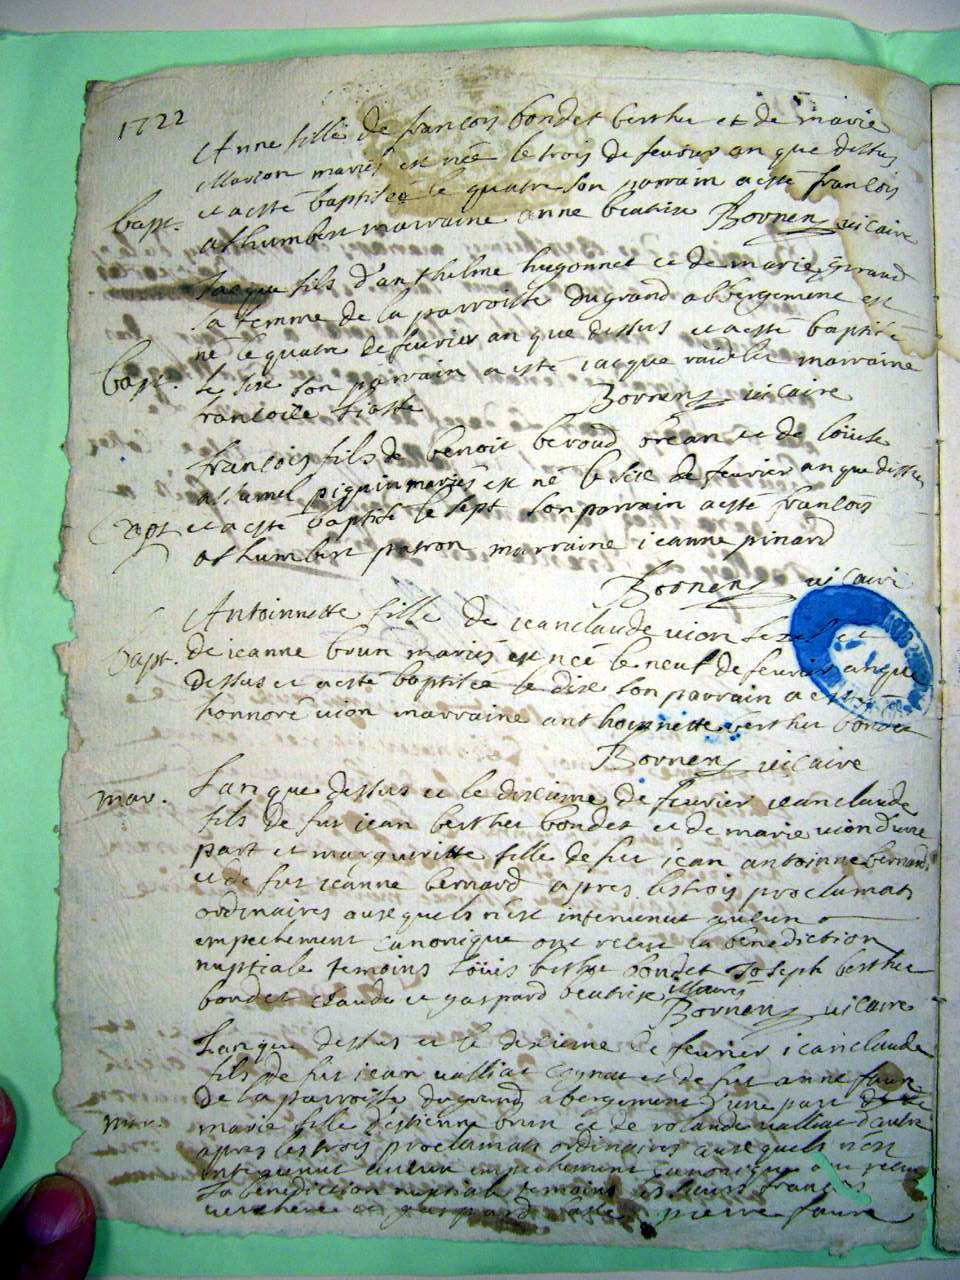 1722
Anne fille de francois bondet berthet et de marie
Marion mariés est née le trois de feuvrier an que dessus
bapt. et a esté baptisée le quatre son parrain a esté francois
athumbert marraine anne beatrix Bornen vicaire
Jacque fils d'anthelme hugonnet et de marie Giraud
sa femme de la parroisse du grand abbergement est
né le quatre de feuvrier an que dessus et a esté baptisé
bapt. le sixe son parrain a esté iacque marraine
francoise Bornen vicaire
francois fils de benoit beroud et de loüise
piquin mariés est né le sixe de feuvrier an que dessus
bapt et a esté baptisé le sept son parrain a esté francois
athumbert patron marraine ieanne pinard
Bornen vicaire
Antoinnette fille de ieanclaude vion et
bapt. de ieanne brun mariés est née le neuf de feuvrier an que
dessus et a esté baptisée le dixe son parrain a esté
honnoré vion marraine anthoinnette berthet bondet
Bornen vicaire
mar. Lan que dessus et le dixieme de feuvrier ieanclaude
fils de fut iean berthet bondet et de marie vion d'une
part et margueritte fille de fut iean antoinne bernard
et de fut ieanne bernard apres les trois proclamats
ordinaires ausquels n'est intervenut aucun
empechement canonique ont receu la benediction
nuptiale temoins loüis berthet bondet Joseph berthet
bondet claude et gaspard beatrix
Bornen vicaire
Lan que dessus et le dixieme de feuvrier ieanclaude
fils de fut iean valliat et de fut anne faure
de la parroisse du grand abergement d'une part
mar. marie fille d'estienne brun et de rolande valliat d'autre
apres les trois proclamats ordinaires ausquels n'est
intervenut aucun empechement canonique ont receu
la benediction nuptiale temoins francois
et gaspard pierre faure